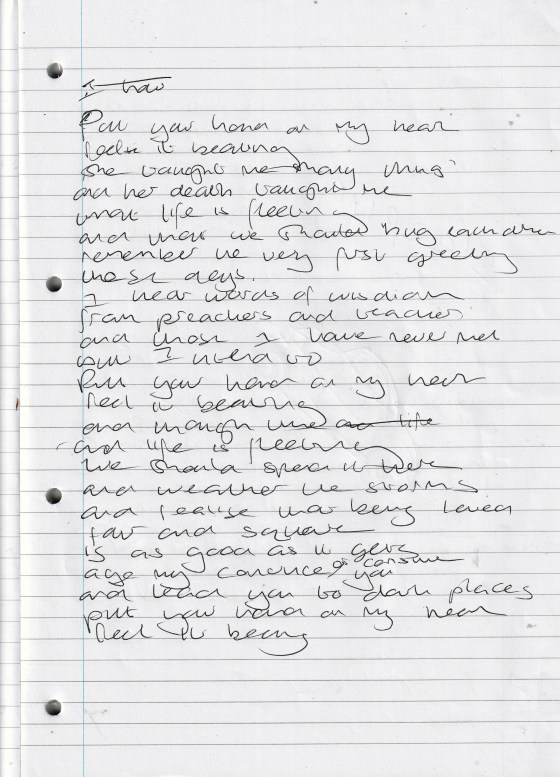 I how
Put your hand on my heart
feel it beating
she taught me many things
and her death taught me
that life is fleeting
and that we should hug each other
remember the very first greeting
these days.
I hear words of wisdom
from preachers and teachers
and those I have never met
but I need to
Put your hand on my heart
feel it beating
and though time and life
and life is fleeting
We should spend it here
and weather the storms
and realise that being loved
fair and square
is as good as it gets
age my convince or consume you
and lead you to dark places
put your hand on my heart
feel it beating